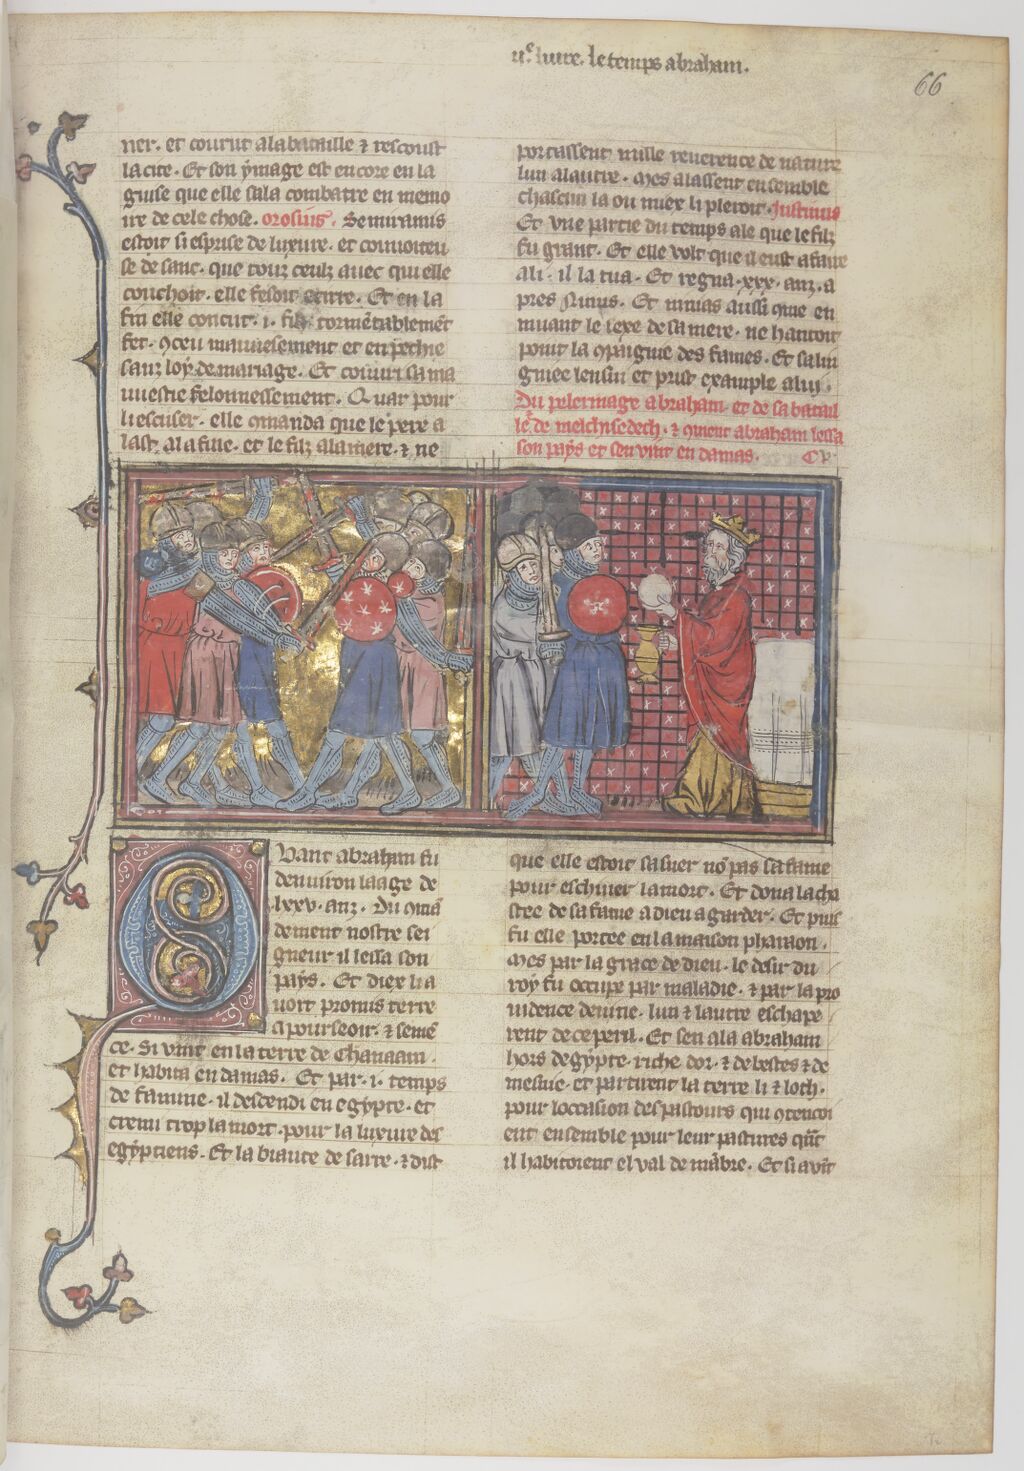 ii.e liure. le temps abraham.
66
ner. et courut alabataille ⁊ rescoust
la cite. Et son ymage est encore en la
guise que elle sala combatre en memo
ire de cele chose. orosius. Semiramis
estoit si esprise de luxure. et couuoiteu
se de sanc. que touz ceulz auec qui elle
couchoit. elle fesoit ocirre. Et en la
fin elle concut .i. filz
fet. ⁊ceu mauuesement et en pechie
sanz loy de mariage. Et couuri sa ma
uuestie felonnessement. Quar pour
li escuser. elle ꝯmanda que le pere a
last ala fille. et le filz alamere. ⁊ ne
portassent nulle reuerence de nature
lun alautre. Mes alassent ensemble
chascun la ou miex li pleroit. Justinus
Et vne partie du temps ale que le filz
fu grant. Et elle volt que il eust afaire
a li. il la tua. Et regna .xxx. anz. a
pres Ninus. Et ninias aussi que en
muant le sexe de sa mere. ne hantoit
point la ꝯpaignie des fames. Et sa lin
gniee lensiui et prist example a luy.
Du pelerinage abraham. et de sa batail
le. de melchisedech. ⁊ ꝯment abraham lessa
son pays et sen vint en damas.
Quant abraham fu
denuiron laage de
lxxv. anz. Du ꝯmā
dement nostre sei
gneur il lessa son
pays. Et diex li a
uoit promis terre
a pourseoir. ⁊ semē
ce. Si vint en la terre de Chanaam.
et habita en damas. Et par .i. temps
de famine. il descendi en egypte. et
cremi trop la mort. pour la luxure des
egyptiens. Et la biaute de sarre. ⁊ dist
que elle estoit sa suer nō pas sa fame
pour eschiuer la mort. Et dona la cha
stee de sa fame a dieu a garder. Et puis
fu elle portee en la maison pharaon.
Mes par la grace de dieu. le desir du
roy fu occupe par maladie. ⁊ par la pro
uidence deuine. lun ⁊ lautre eschape
rent de ce peril. Et sen ala abraham
hors degypte. riche dor. ⁊ de bestes ⁊ de
mesnie. et partirent la terre li ⁊ loth.
pour loccasion des pastours qui ꝯtencoi
ent ensemble pour leur pastures qūt
il habitoient el val de mābre. Et si auīt